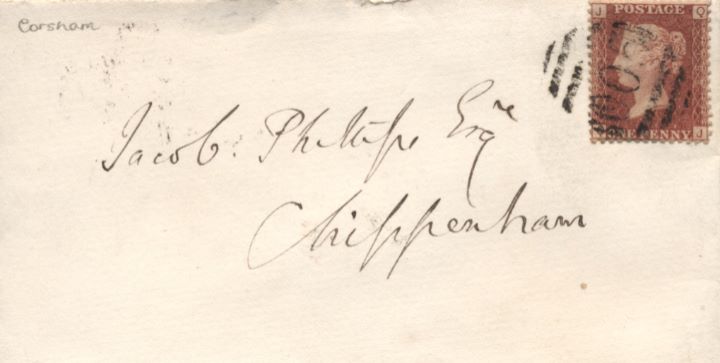 Corsham
J Q
POSTAGE
ONE PENNY
J
Jacob. Phillips Esqre
Chippenham